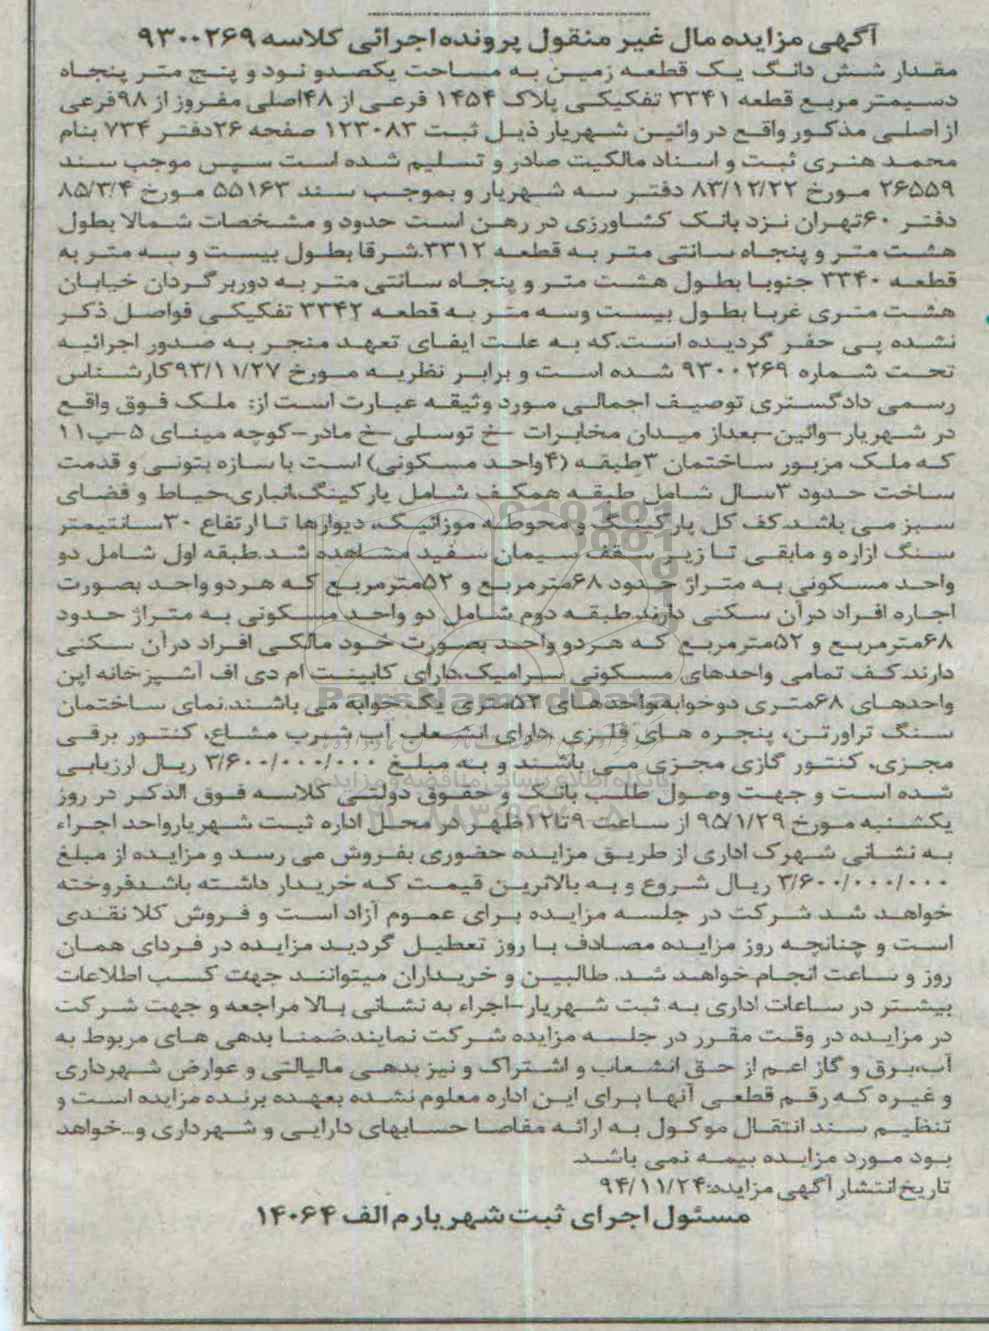 آگهی مزایده مال غیر منقول پرونده اجرائی کلاسه ۹۳۰۰۲۶۹
مقدار شش دانگ یک قطعه زمین به مساحت یکصدو نود و پنج متر پنجاه
دسیمتر مربع قطعه ۳۳۴۱ تفکیکی پلاک ۱۴۵۴ فرعی از ۴۸اصلی مفروز از ۹۸فرعی
از اصلی مذکور واقع در وائین شهریار ذیل ثبت ۱۲۳۰۸۳ صفحه ۲۶دفتر ۷۳۴ بنام
محمد هنری ثبت و اسناد مالکیت صادر و تسلیم شده است سپس موجب سند
۲۶۵۵۹ مورخ ۸۳/۱۲/۲۲ دفتر سه شهریار و بموجب سند ۵۵۱۶۳ مورخ ۸۵/۳/۴
دفتر ۶۰تهران نزد بانک کشاورزی در رهن است حدود و مشخصات شمالا بطول
هشت متر و پنجاه سانتی متر به قطعه ۳۳۱۲.شرقا بطول بیست و سه متر به
قطعه ۳۳۴۰ جنوبا بطول هشت متر و پنجاه سانتی متر به دوربرگردان خیابان
هشت متری غربا بطول بیست وسه متر به قطعه ۳۳۴۲ تفکیکی فواصل ذکر
نشده پی حفر گردیده است.که به علت ایفای تعهد منجر به صدور اجرائیه
تحت شماره ۹۳۰۰۲۶۹ شده است و برابر نظریه مورخ ۹۳/۱۱/۲۷کارشناس
رسمی دادگستری توصیف اجمالی مورد وثیقه عبارت است از: ملک فوق واقع
در شهریار-وائین-بعداز میدان مخابرات -خ توسلی-خ مادر-کوچه مینای ۵-پ۱۱
که ملک مزبور ساختمان ۳طبقه (۴واحد مسکونی) است با سازه بتونی و قدمت
ساخت حدود ۳سال شامل طبقه همکف شامل پارکینگ،انباری،حیاط و فضای
سبز می باشد.کف کل پارکینگ و محوطه موزائیک، دیوارها تا ارتفاع ۳۰سانتیمتر
سنگ ازاره و مابقی تا زیر سقف سیمان سفید مشاهده شد.طبقه اول شامل دو
واحد مسکونی به متراژ حدود ۶۸مترمربع و ۵۲مترمربع که هردو واحد بصورت
اجاره افراد درآن سکنی دارند.طبقه دوم شامل دو واحد مسکونی به متراژ حدود
۶۸مترمربع و ۵۲مترمربع که هردو واحد بصورت خود مالکی افراد درآن سکنی
دارند.کف تمامی واحدهای مسکونی سرامیک،دارای کابینت ام دی اف آشپزخانه این
واحدهای ۶۸متری دوخوابه،واحدهای ۵۲متری یک خوابه می باشند.نمای ساختمان
سنگ تراورتن، پنجره های فلزی ،دارای انشعاب آب شرب مشاع، کنتور برقی
مجزی، کنتور گازی مجزی می باشند و به مبلغ ۳/۶۰۰/۰۰۰/۰۰۰ ریال ارزیابی
شده است و جهت وصول طلب بانک و حقوق دولتی کلاسه فوق الذکر در روز
یکشنبه مورخ ۹۵/۱/۲۹ از ساعت ۹تا۱۲ظهر در محل اداره ثبت شهریارواحد اجراء
به نشانی شهرک اداری از طریق مزایده حضوری بفروش می رسد و مزایده از مبلغ
۳/۶۰۰/۰۰۰/۰۰۰ ریال شروع و به بالاترین قیمت که خریدار داشته باشدفروخته
خواهد شد شرکت در جلسه مزایده برای عموم آزاد است و فروش کلا نقدی
است و چنانچه روز مزایده مصادف با روز تعطیل گردید مزایده در فردای همان
روز و ساعت انجام خواهد شد. طالبین و خریداران میتوانند جهت کسب اطلاعات
بیشتر در ساعات اداری به ثبت شهریار-اجراء به نشانی بالا مراجعه و جهت شرکت
در مزایده در وقت مقرر در جلسه مزایده شرکت نمایند.ضمنا بدهی های مربوط به
آب،برق و گاز اعم از حق انشعاب و اشتراک و نیز بدهی مالیالتی و عوارض شهرداری
و غیره که رقم قطعی آنها برای این اداره معلوم نشده بعهده برنده مزایده است و
تنظیم سند انتقال موکول به ارائه مفاصا حسابهای دارایی و شهرداری و...خواهد
بود مورد مزایده بیمه نمی باشد.
تاریخ انتشار آگهی مزایده:۹۴/۱۱/۲۴
مسئول اجرای ثبت شهریار م الف ۱۴۰۶۴
ParsNamadData